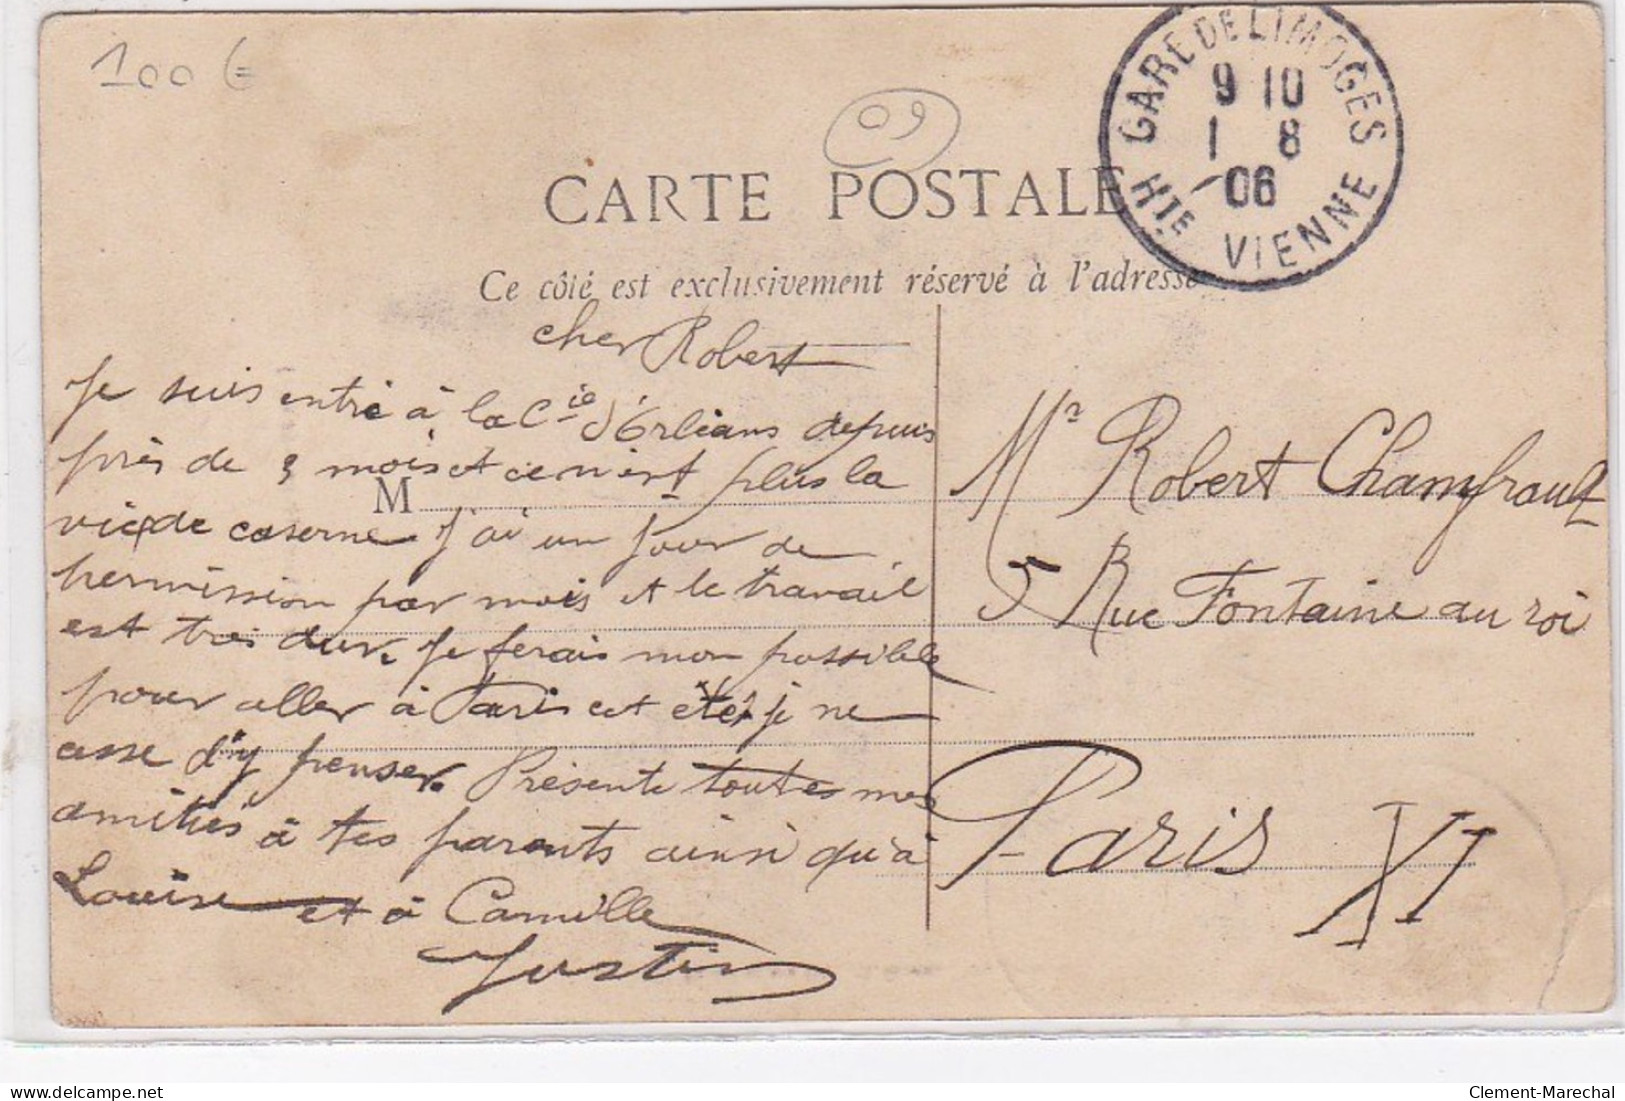 100 €
09
GARE DE LIMOGES
9 10
1 8
06
Hte VIENNE
CARTE POSTALE
Ce côté est exclusivement réservé à l'adresse
cher Robert
Je suis entré à la Cie d'Orléans depuis
près de 3 mois et ce n'est plus la
vie de caserne j'ai un jour de
permission par mois et le travail
est très dur. Je ferais mon possible
pour aller à Paris cet été, je ne
cesse d'y penser. Présente toutes mes
amitiés à tes parents ainsi qu'à
Louise et à Camille
Justin
M
Mr Robert Chamfrault
5 Rue Fontaine au roi
Paris XI
Clement-Marechal